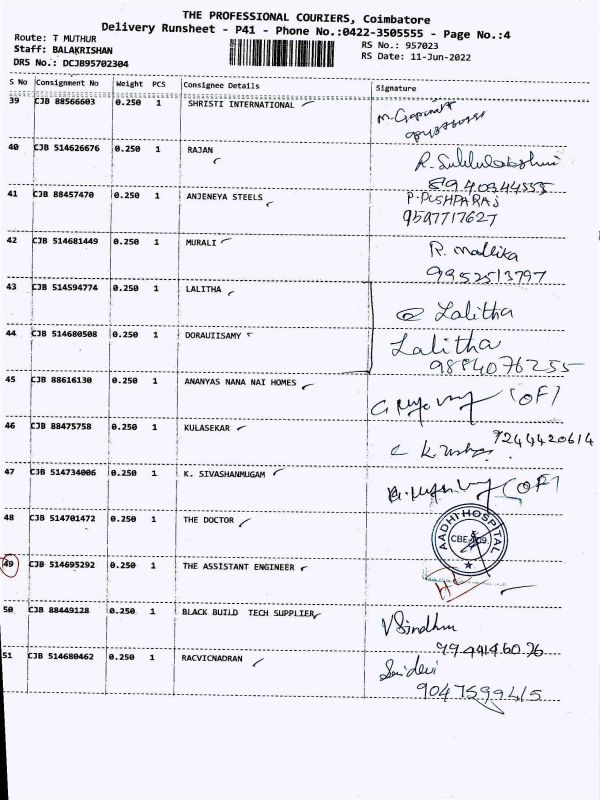 THE PROFESSIONAL COURIERS, Coimbatore
Delivery Runsheet - P41 - Phone No.:0422-3505555 - Page No.:4
Route: T MUTHUR
RS No.: 957023
Staff: BALAKRISHAN
RS Date: 11-Jun-2022
DRS No.: DCJB95702304
S No Consignment No Weight PCS Consignee Details Signature
39 CJB 88566603 0.250 1 SHRISTI INTERNATIONAL
40 CJB 514626676 0.250 1 RAJAN
41 CJB 88457470 0.250 1 ANJENEYA STEELS P. PUSHPARAJ
9597717627
42 CJB 514681449 0.250 1 MURALI R. Mallika
9952513797
43 CJB 514594774 0.250 1 LALITHA Lalitha
44 CJB 514680508 0.250 1 DORAUIISAMY Lalitha
9884076255
45 CJB 88616130 0.250 1 ANANYAS NANA NAI HOMES (OF)
46 CJB 88475758 0.250 1 KULASEKAR 9244420614
47 CJB 514734006 0.250 1 K. SIVASHANMUGAM (OF)
48 CJB 514701472 0.250 1 THE DOCTOR AADHI HOSPITAL
49 CJB 514695292 0.250 1 THE ASSISTANT ENGINEER
50 CJB 88449128 0.250 1 BLACK BUILD TECH SUPPLIER V Sindhu
51 CJB 514680462 0.250 1 RACVICNADRAN Sridevi